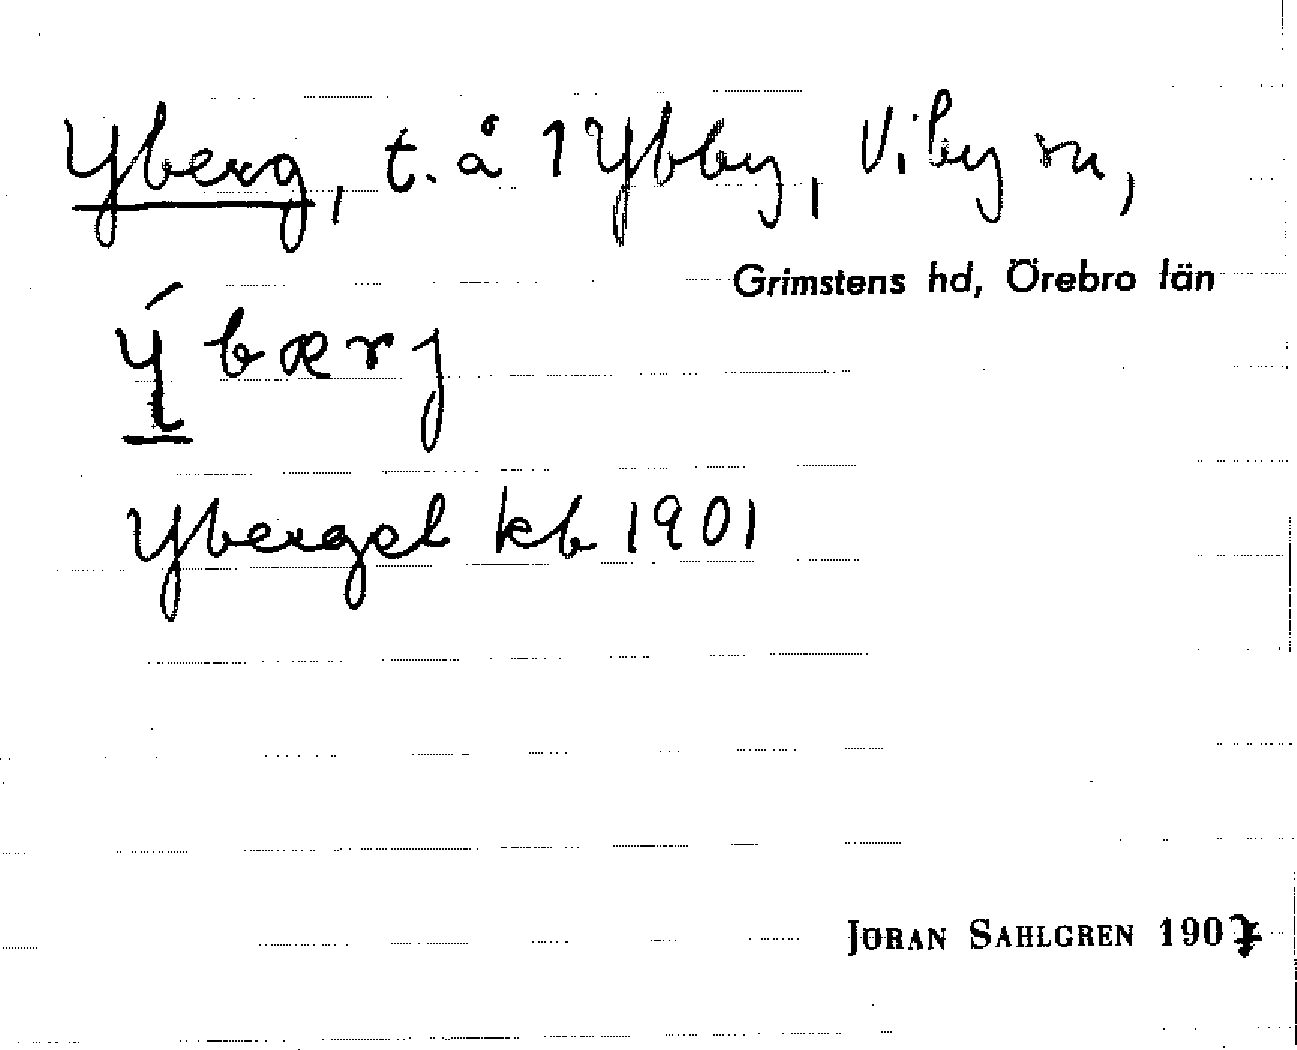 Yberg, t. å 1 Ybby, Viby sn,
Grimstens hd, Örebro län
Ýbærj
Yberget kb 1901
JÖRAN SAHLGREN 1907